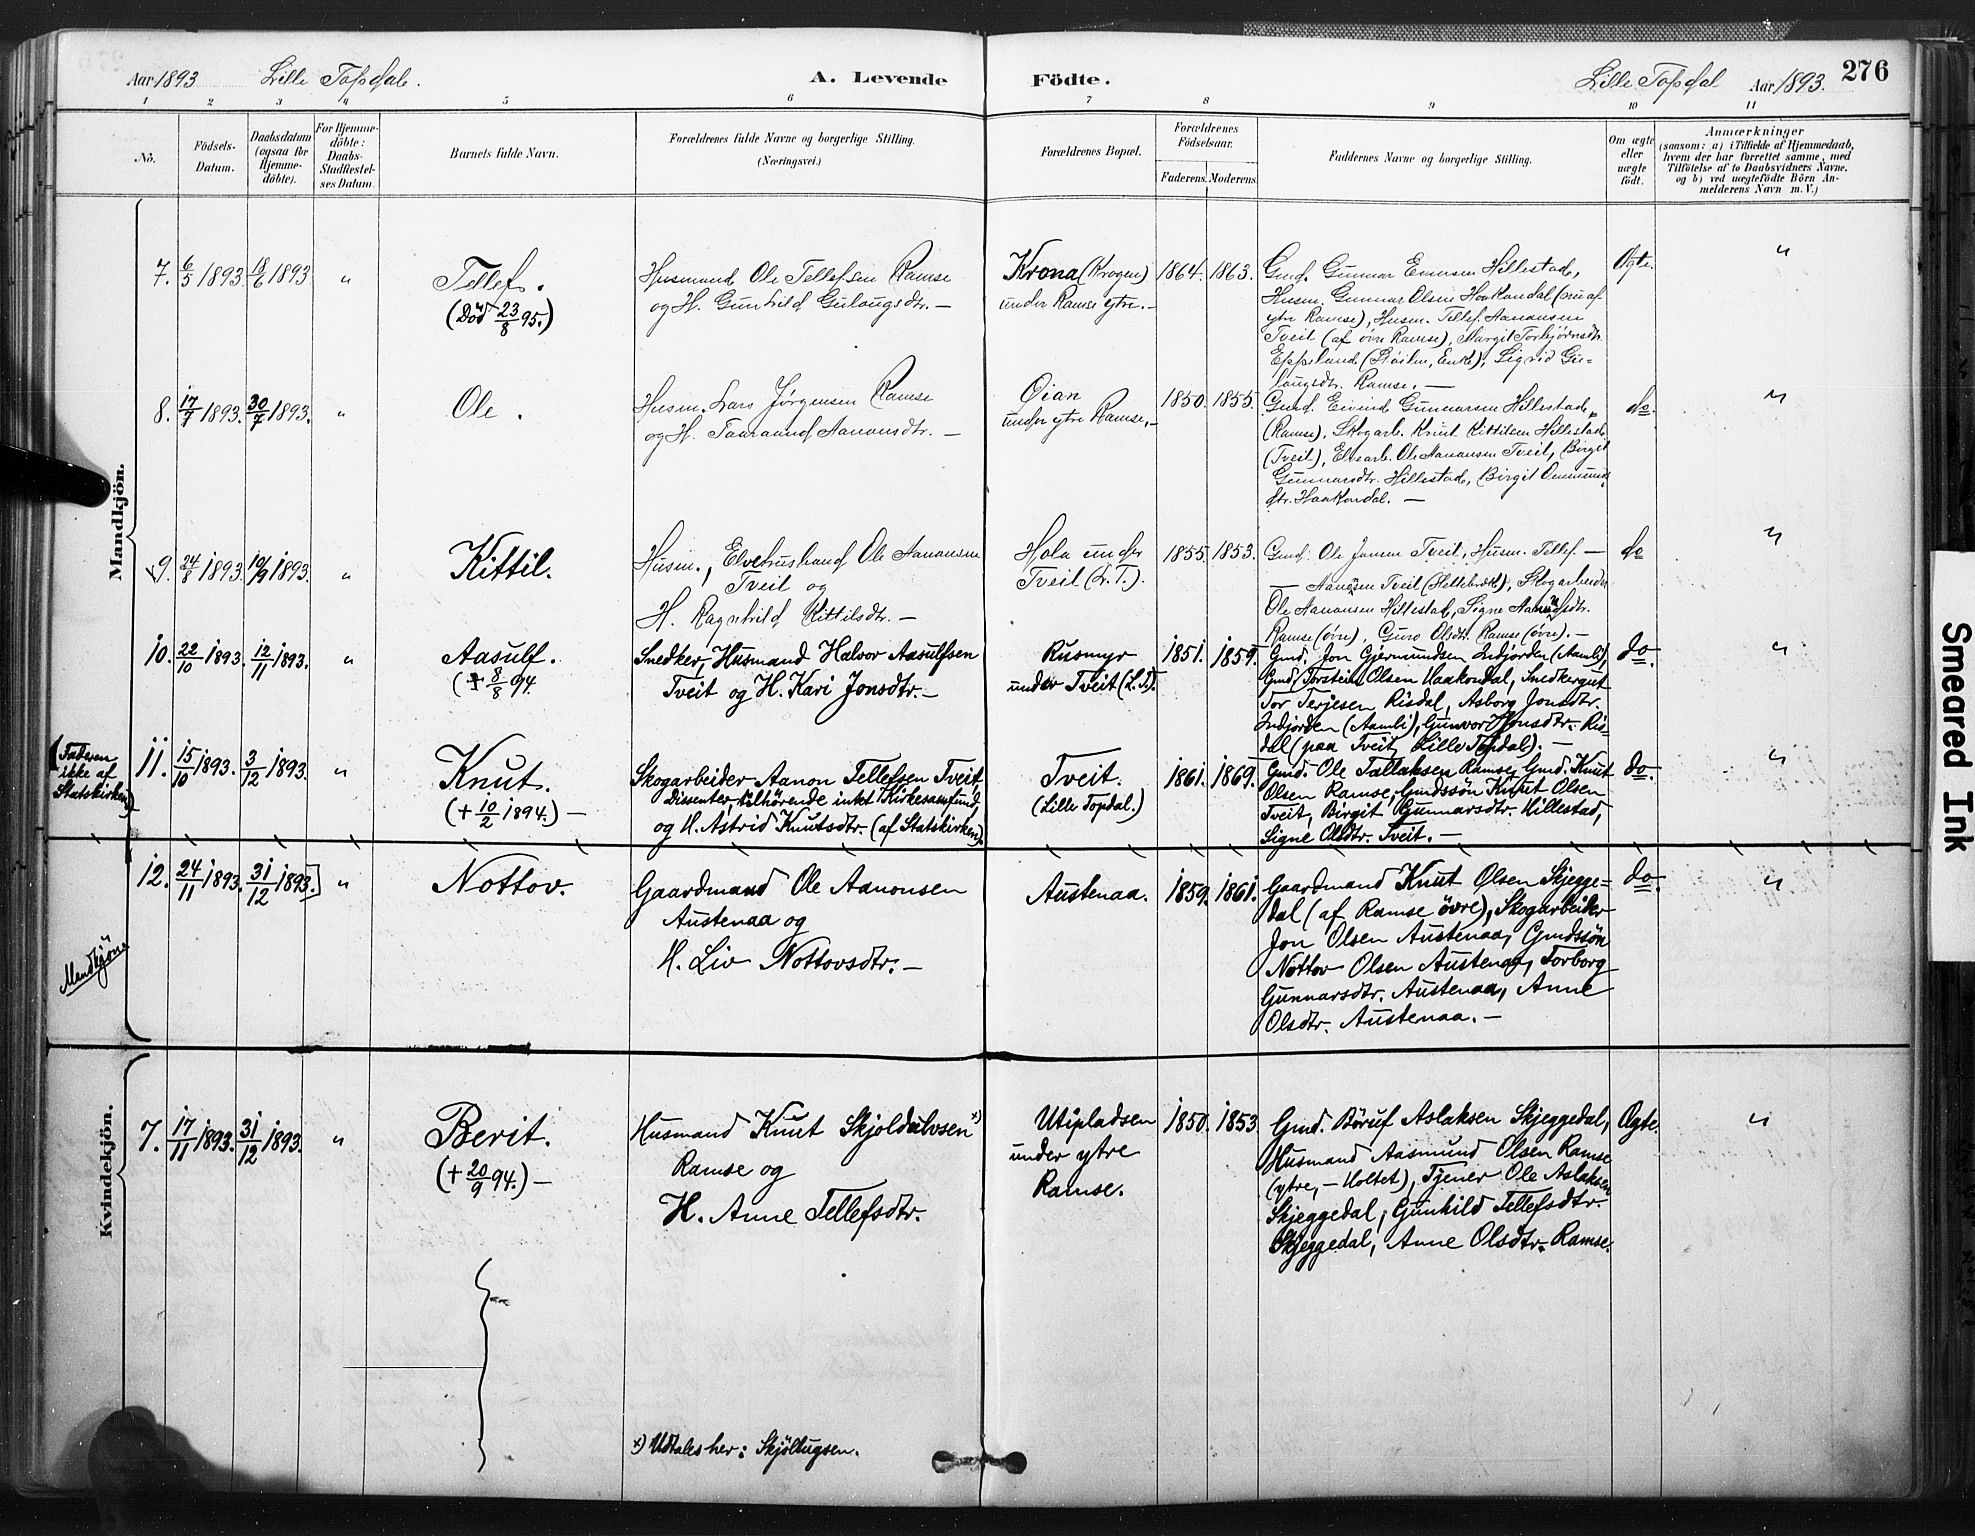 Aar 1893 Lille Topdal. A. Levende Födte. Lille Topdal Aar 1893. 276
1 2 3 4 5 6 7 8 9 10 11
No.
Födsels-
Datum.
Daabsdatum
(ogsaa for
Hjemme-
döbte).
For Hjemme-
döbte:
Daabs-
Stadfestel-
ses Datum.
Barnets fulde Navn.
Forældrenes fulde Navne og borgerlige Stilling.
(Næringsvei.)
Forældrenes Bopæl.
Forældrenes
Födselsaar.
Faderens. Moderens.
Faddernes Navne og borgerlige Stilling.
Om ægte
eller
uægte
födt.
Anmærkninger
(saasom: a) i Tilfælde af Hjemmedaab,
hvem der har forrettet samme, med
Tilföielse af to Daabsvidners Navne,
og b) ved uægtefödte Börn An-
melderens Navn m. V.)
Mandkjön.
7. 6/5 1893. 18/6 1893. "
Tellef.
(Död 23/8 95.)
Husmand Ole Tellefsen Ramse
og H. Gunhild Gulaugsdtr. —
Krona (Krogen)
under Ramse ytre. —
1864. 1863.
Gmd. Gunnar Hillestad,
Husm. Gunnar Olsen Haakondal (nu af
ytre Ramse), Husm. Tellef Aanonsen
Tveit (af övre Ramse), Margit Torbjörnsdtr.
Eppeland (Enke), Sigrid Gu-
laugsdtr. Ramse. —
Ægte. "
8. 17/7 1893. 30/7 1893. "
Ole.
Husm. Lars Jørgensen Ramse
og H. Taaraand Aanonsdtr. —
Öian
under ytre Ramse. —
1850. 1855.
Gmd. Eivind Gunnarsen Hillestad,
(Ramse), Skogarb. Knut Kittilsen Hillestad
(Tveit), Elvearb. Ole Aanonsen Tveit, Birgit
Gunnarsdtr. Hillestad, Birgit Ommunds
dtr. Haakondal. —
do. "
9. 24/8 1893. 10/9 1893. "
Kittil.
Husm., Ole Aanonsen
Tveit og
H. Ragnhild Kittilsdtr. —
Hola under
Tveit (L. T.).
1855. 1853.
Gmd. Ole Jonsen Tveit, Husm. Tellef —
— Aanonsen Tveit, Skogarbeider
Ole Aanonsen Hillestad, Signe Aanonsdtr.
Ramse (øvre), Guro Olsdtr. Ramse (øvre). —
do "
10. 22/10 1893. 12/11 1893. "
Aasulf.
(+ 8/8 94.
Snedker, Husmand Halvor Aasulfsen
Tveit og H. Kari Jonsdtr. —
Rusmyr
under Tveit (L. T.).
1851. 1859.
Gmd. Jon Gjermundsen Indjorden (Aamli),
Gmd. Torstein Olsen Haakondal, Snedkergut
Tor Terjesen Risdal, Asborg Jonsdtr.
Indjorden (Aamli), Gunvor Jonsdtr. Ris-
dal (paa Tveit, Lille Topdal). —
do. "
(Faderen
ikke af
Statskirken)
11. 15/10 1893. 3/12 1893. "
Knut.
(+ 10/2 1894.) —
Skogarbeider Aanon Tellefsen Tveit,
Dissenter, tilhörende intet Kirkesamfund,
og H. Astrid Knutsdtr. (af Statskirken).
Tveit.
(Lille Topdal.)
1861. 1869.
Gmd. Ole Tallaksen Ramse, Gmd. Knut
Olsen Ramse, Gmdssön Knut Olsen
Tveit, Birgit Gunnarsdtr. Hillestad,
Signe Olsdtr. Tveit. —
do. "
Mandkjön
12. 24/11 1893. 31/12 1893. "
Nottov.
Gaardmand Ole Aanonsen
Austenaa og
H. Liv Nottovsdtr. —
Austenaa.
1859. 1861.
Gaardmand Knut Olsen Skjegge-
dal (af Ramse övre), Skogarbeider
Jon Olsen Austenaa, Gmdssön
Nottov Olsen Austenaa, Torborg
Gunnarsdtr. Austenaa, Anne
Olsdtr. Austenaa. —
do. "
Kvindekjön.
7. 17/11 1893. 31/12 1893. "
Berit.
(+ 20/9 94.) —
Husmand Knut Skjoldulvsen x)
Ramse og
H. Anne Tellefsdtr.
Utipladsen
under ytre
Ramse.
1850. 1853
Gmd. Böruf Aslaksen Skjeggedal,
Husmand Aasmund Olsen Ramse
(ytre, — Holtet), Tjener Ole Aslaksen
Skjeggedal, Gunhild Tellefsdtr.
Skjeggedal, Anne Olsdtr. Ramse.
Ægte. "
x) Udtales her: Skjöltugsen.
Smeared Ink